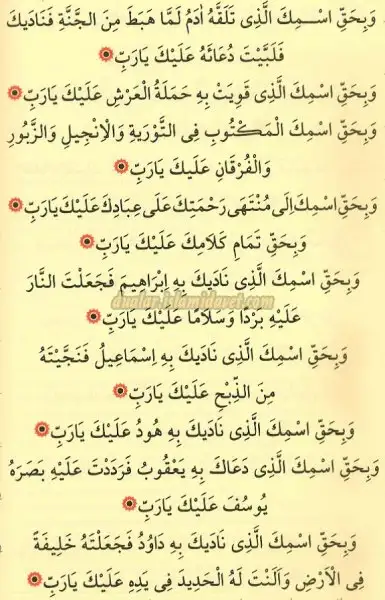 وَبِحَقِّ اسْمِكَ الَّذِى تَلَقَّهُ اٰدَمُ لَمَّا هَبَطَ مِنَ الْجَنَّةِ فَنَادَيكَ
فَلَبَّيْتَ دُعَائَهُ عَلَيْكَ يَارَبِّ
وَبِحَقِّ اسْمِكَ الَّذِى قَوِيَتْ بِهِ حَمَلَةُ الْعَرْشِ عَلَيْكَ يَارَبِّ
وَبِحَقِّ اسْمِكَ الْمَكْتُوبِ فِى التَّوْرٰيةِ وَالْاِنْجِيلِ وَالزَّبُورِ
وَالْفُرْقَانِ عَلَيكَ يَارَبِّ
وَبِحَقِّ اسْمِكَ اِلَى مُنْتَهَى رَحْمَتِكَ عَلَى عِبَادِكَ عَلَيْكَ يَارَبِّ
وَبِحَقِّ تَمَامِ كَلَامِكَ عَلَيْكَ يَارَبِّ
وَبِحَقِّ اسْمِكَ الَّذِى نَادَيكَ بِهِ اِبْرَاهِيمَ فَجَعَلْتَ النَّارَ
dualar.islamidavet.com
عَلَيْهِ بَرْدًا وَسَلَامًا عَلَيْكَ يَارَبِّ
وَبِحَقِّ اسْمِكَ الَّذِى نَادَيكَ بِهِ اِسْمَاعِيلُ فَنَجَّيْتَهُ
مِنَ الذِّبْحِ عَلَيْكَ يَارَبِّ
وَبِحَقِّ اسْمِكَ الَّذِى نَادَيكَ بِهِ هُودُ عَلَيْكَ يَارَبِّ
وَبِحَقِّ اسْمِكَ الَّذِى دَعَاكَ بِهِ يَعْقُوبُ فَرَدَدْتَ عَلَيْهِ بَصَرَهُ
يُوسُفَ عَلَيْكَ يَارَبِّ
وَبِحَقِّ اسْمِكَ الَّذِى نَادَيكَ بِهِ دَاوُدُ فَجَعَلْتَهُ خَلِيفَةً
فِى الْاَرْضِ وَاَلَنْتَ لَهُ الْحَدِيدَ فِى يَدِهِ عَلَيْكَ يَارَبِّ